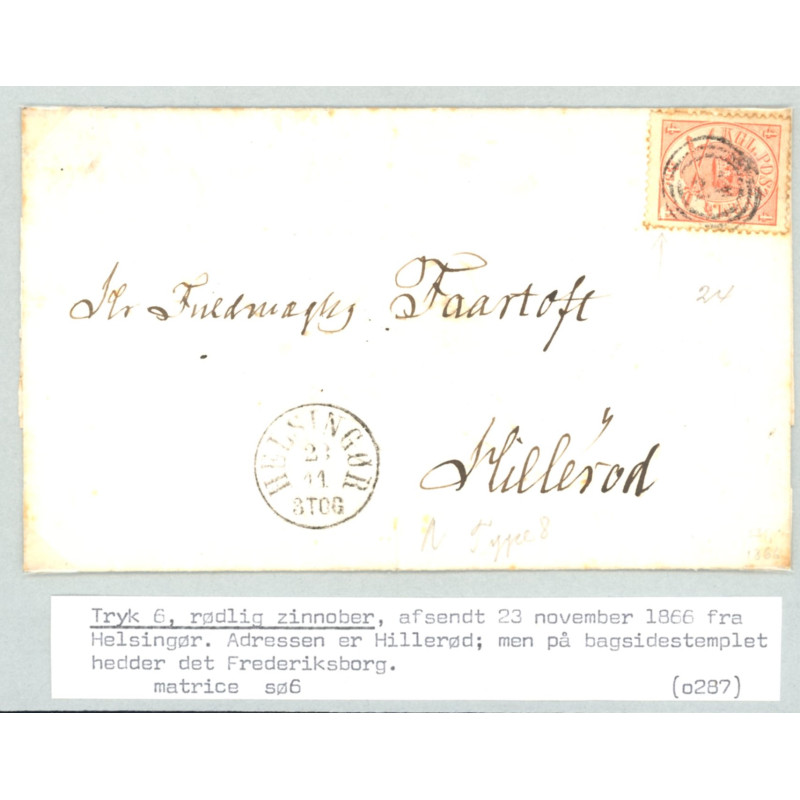 KGL. PD.
24
Hr Fuldmægtig Faartoft
HELSINGØR
23
11
3TOG
Hillerød
N Type 8
Tryk 6, rødlig zinnober, afsendt 23 november 1866 fra
Helsingør. Adressen er Hillerød; men på bagsidestemplet
hedder det Frederiksborg.
matrice sø6 (o287)